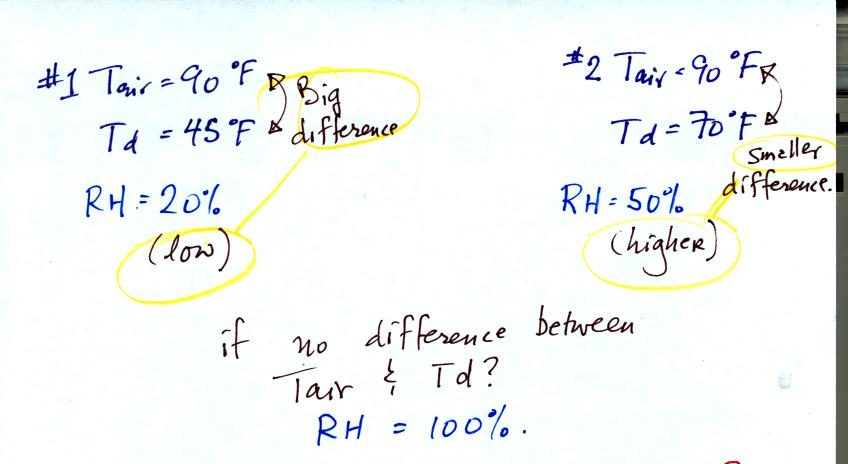 #1 Tair = 90 °F
Big
Td = 45 °F
difference
RH = 20%
(low)
#2 Tair = 90 °F
Td = 70°F
Smaller
difference.
RH = 50%
(higher)
if no difference between
Tair & Td?
RH = 100%.